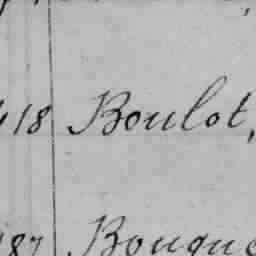 18 Boulot,
187 Bouque